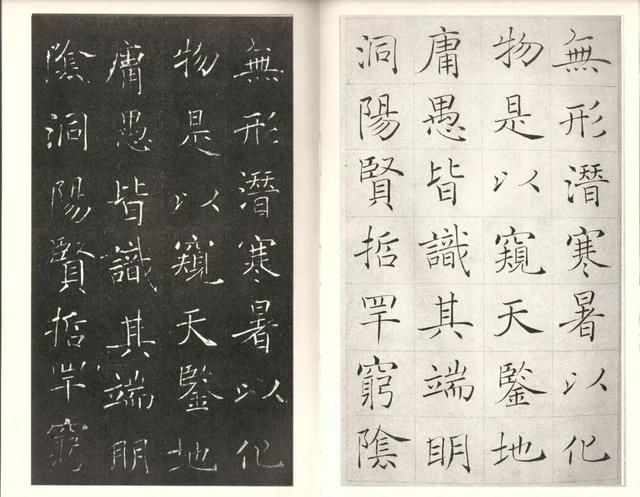 無形潛寒暑以化
物是以窺天鑒地
庸愚皆識其端明
洞陽賢哲罕窮陰
無形潛寒暑以化
物是以窺天鑒地
庸愚皆識其端明
陰洞陽賢哲罕窮